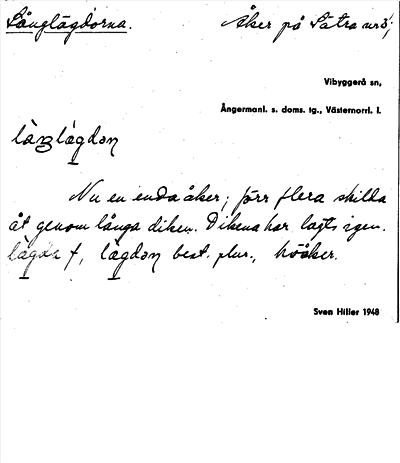 Långlägdorna. Åker på Sätra nr 3;
Vibyggerå sn,
Ångermanl. s. doms. tg., Västernorrl. l.
làŋlägdən
Nu en enda åker; förr flera skilda
åt genom långa diken. Dikena har lagts igen.
lägda f, lägdən best. plur.,
Sven Hiller 1948